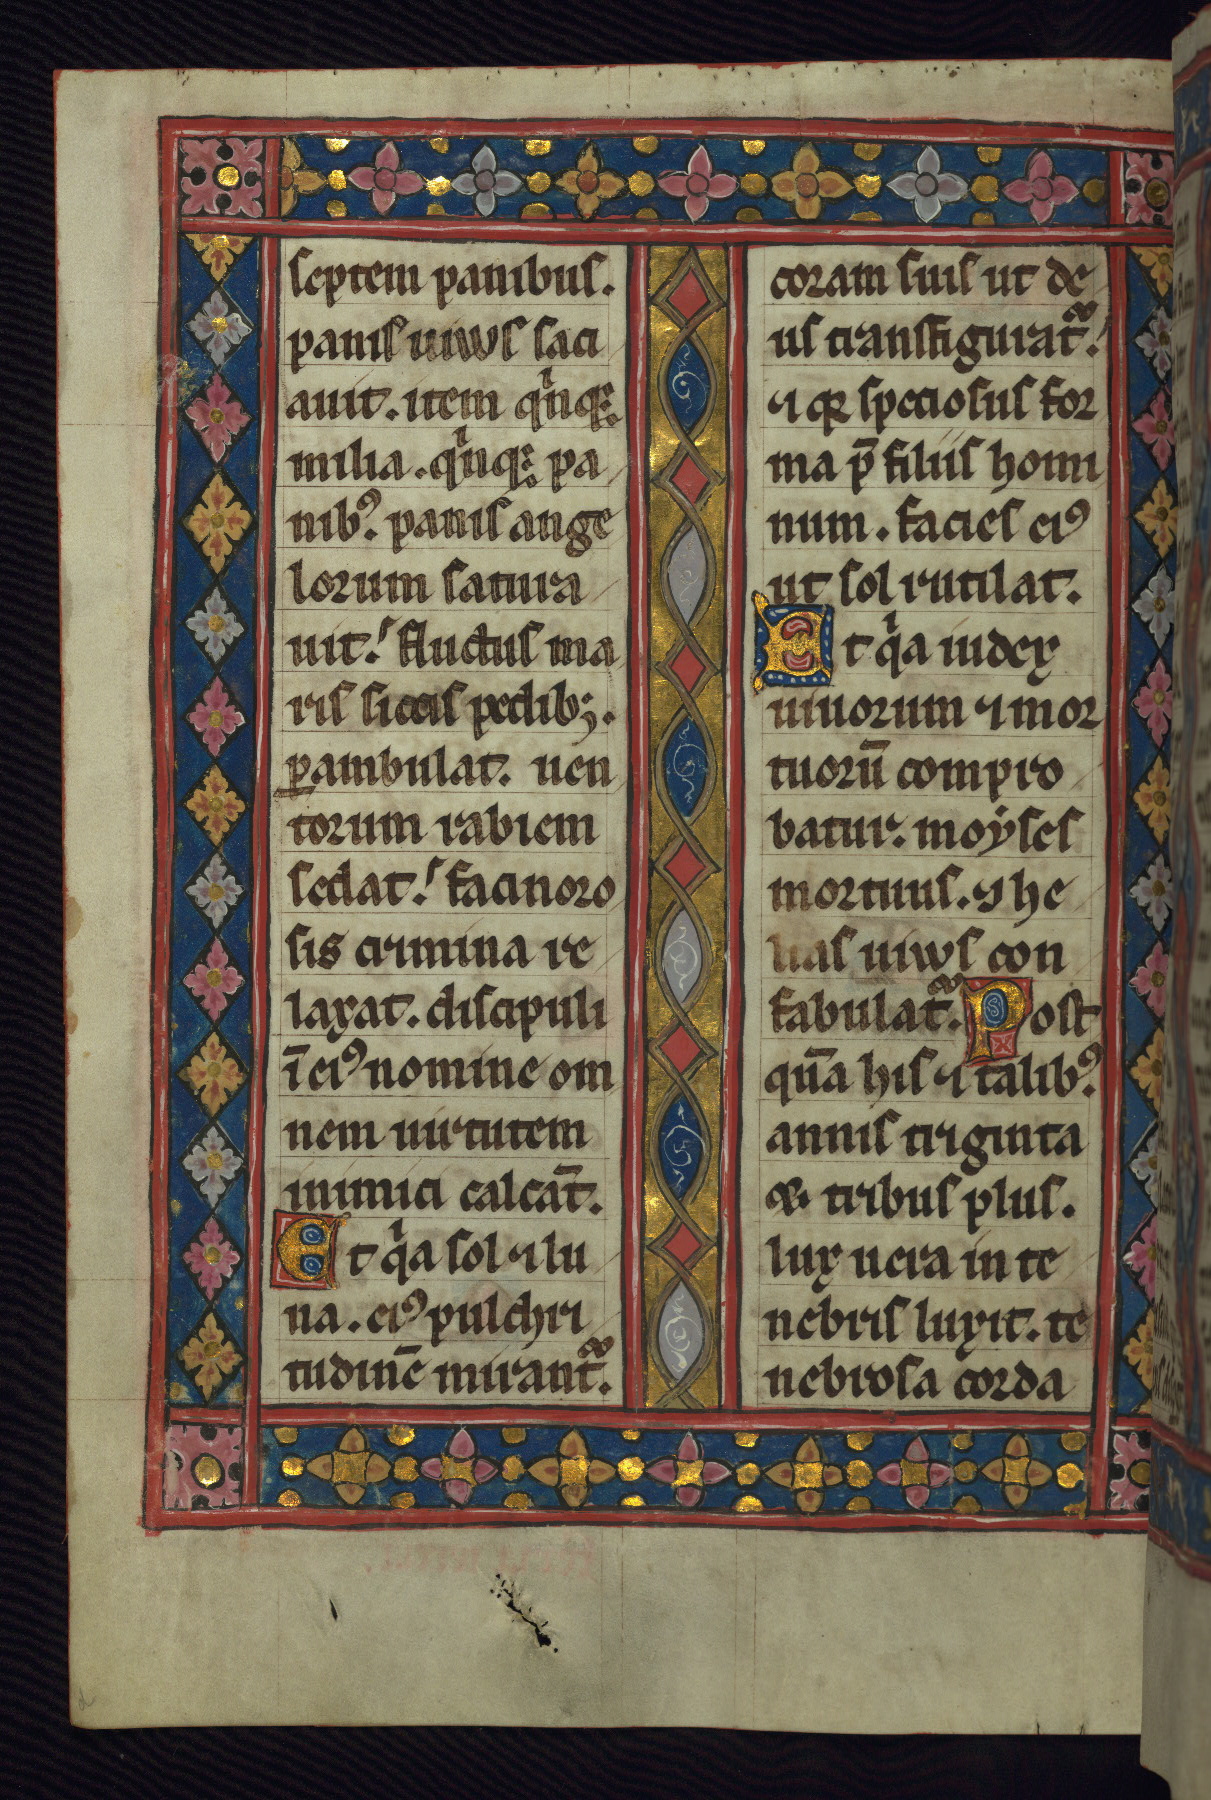 septem panibus.
panis uiuus saci
auit. item qͥnqꝫ
milia. qͥnqꝫ pa
nibꝰ. panis ange
lorum satura
uit. fluctus ma
ris siccis pedibꝫ.
ꝑambulat. uen
torum rabiem
sedat. facinoro
sis crimina re
laxat. discipuli
ī eiꝰ nomine om
nem uirtutem
inimici calcāt.
Et qͥa sol ⁊ lu
na. eiꝰ pulchri
tudinē mirant᷑.
coram suis ut de
us transfigurat᷑.
⁊ qꝛ speciosus for
ma p̄ filiis homi
num. facies eiꝰ
ut sol rutilat.
Et qͥa iudex
uiuorum ⁊ mor
tuorū compro
batur. moẏses
mortuus. ⁊ he
lias uiuus con
fabulat᷑. Post
qua̅ his ⁊ talibꝰ.
annis triginta
qꝫ tribus plus.
lux uera in te
nebris luxit. te
nebrosa corda